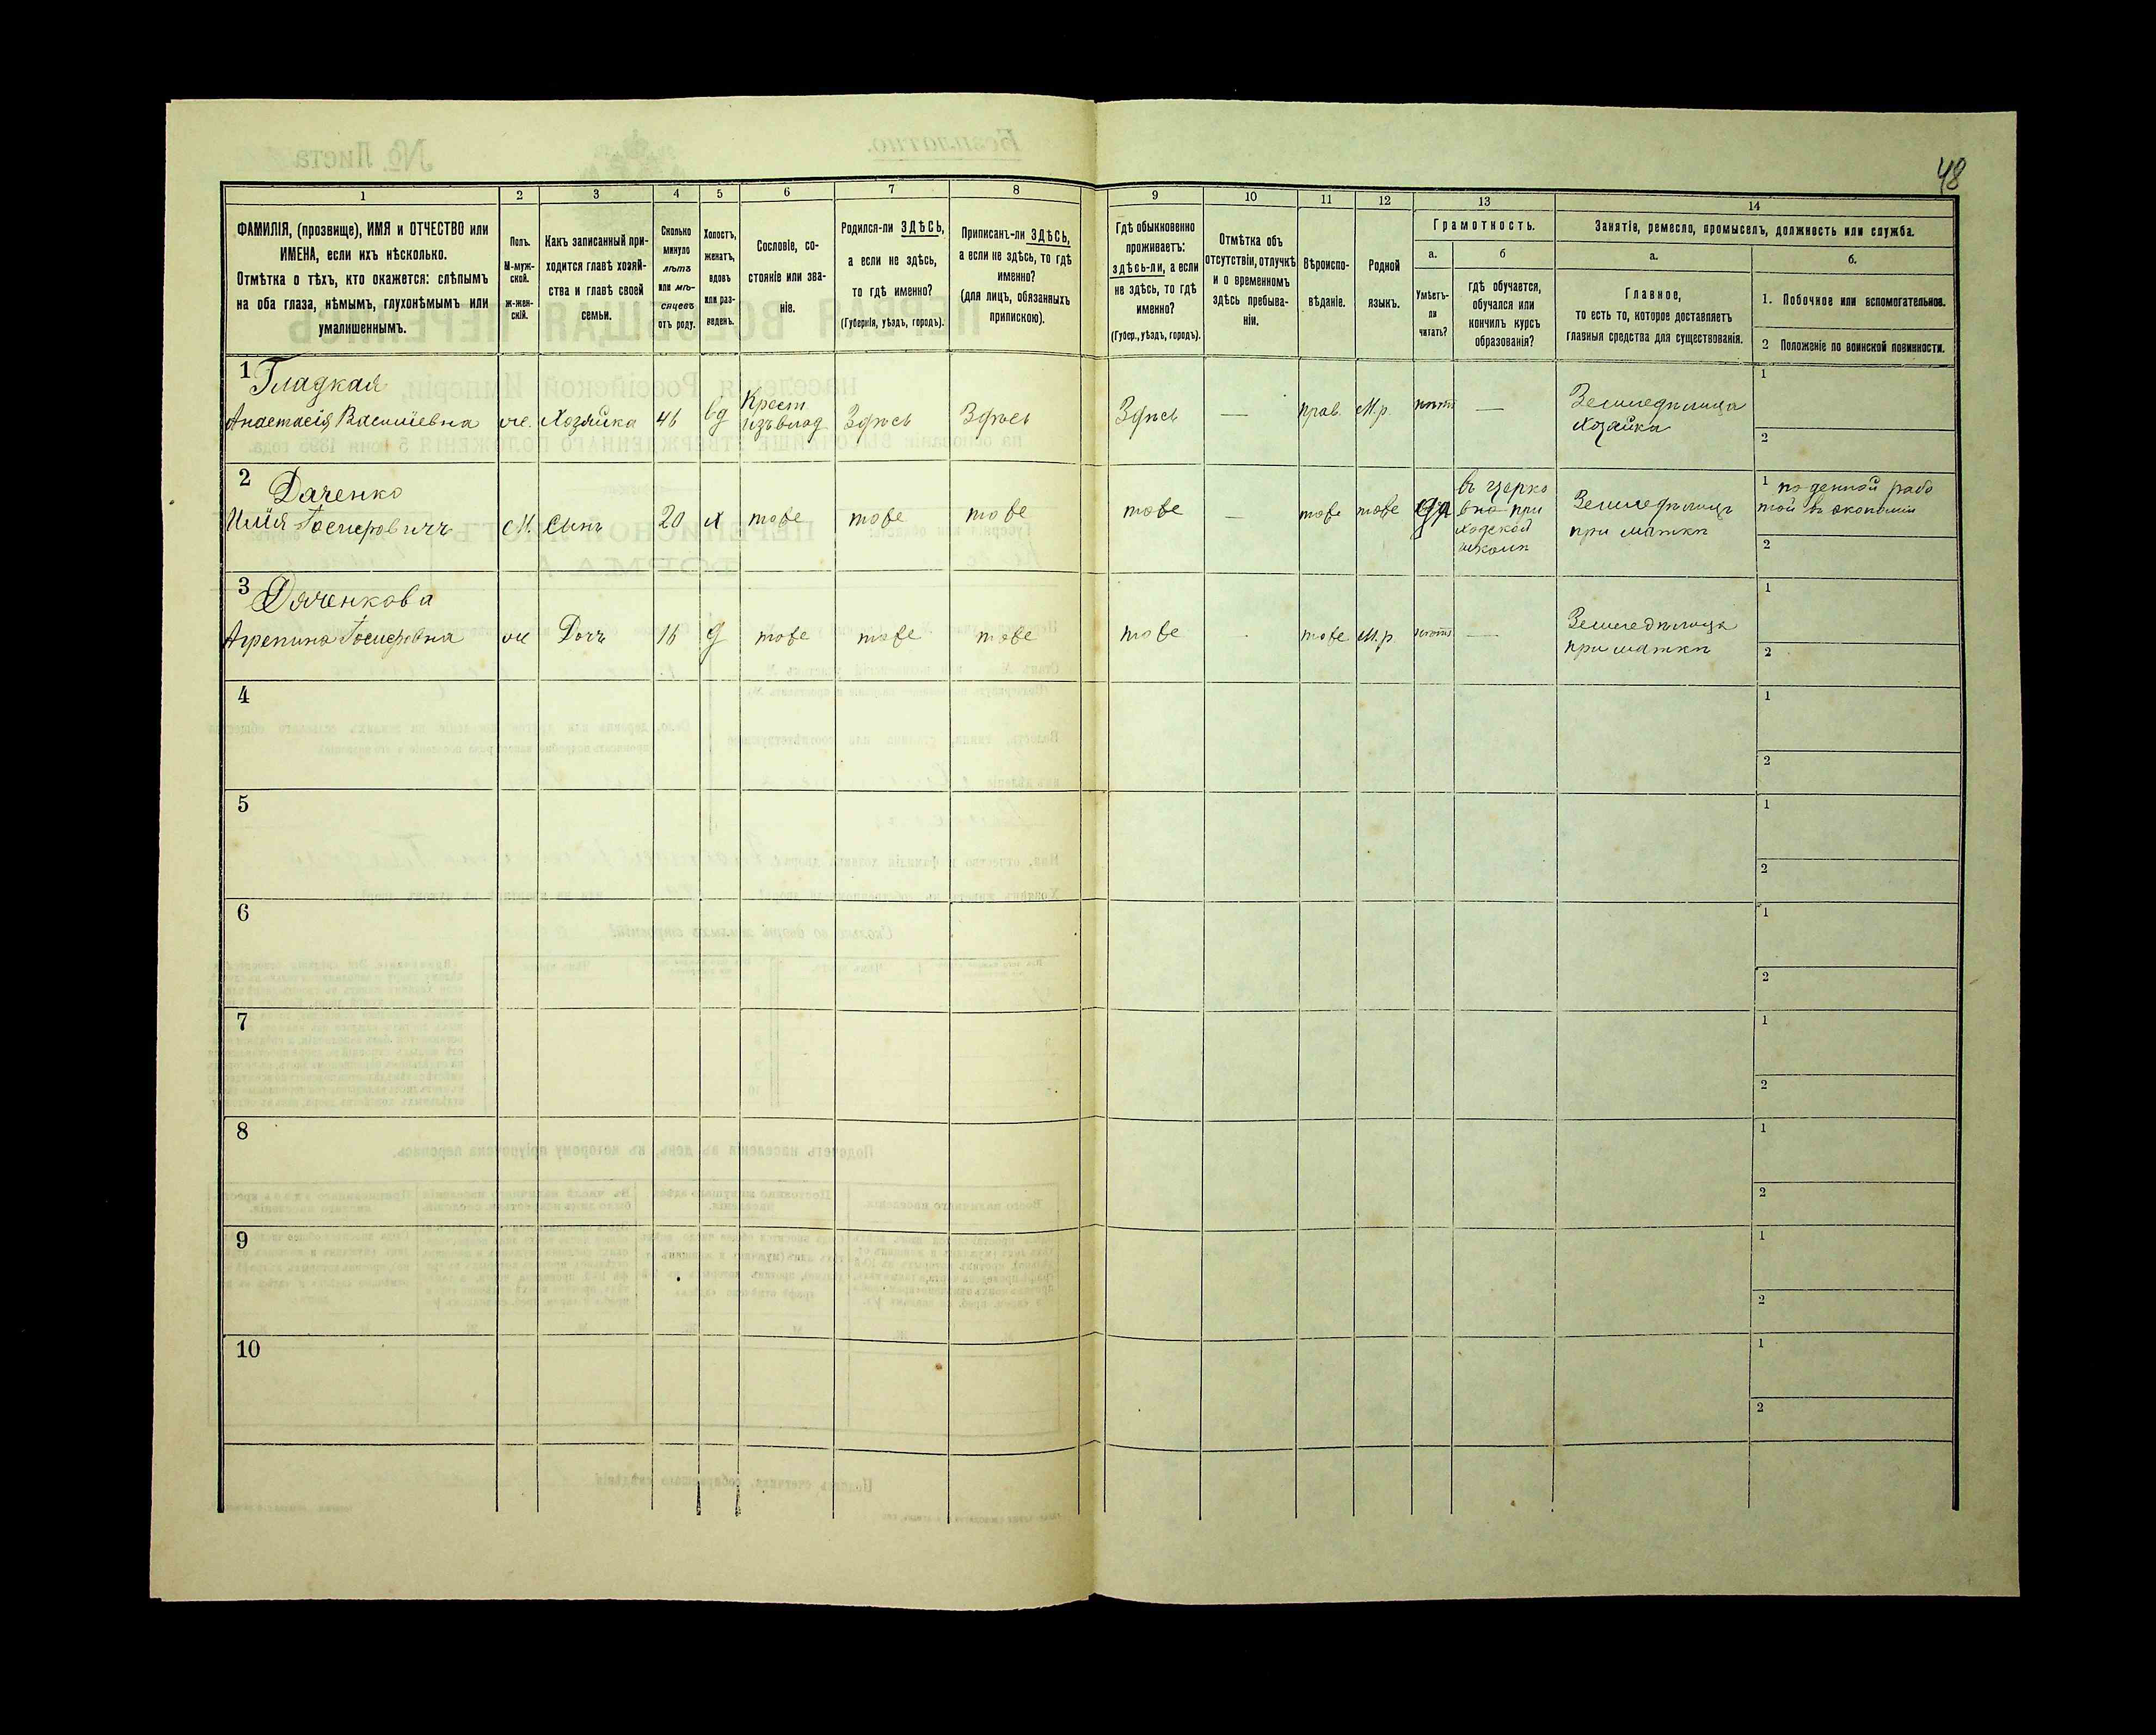 48
1
2
3
4
5
6
7
8
9
10
11
12
13
14
ФАМИЛІЯ, (прозвище), ИМЯ и ОТЧЕСТВО или
ИМЕНА, если ихъ нѣсколько.
Отмѣтка о тѣхъ, кто окажется: слѣпымъ
на оба глаза, нѣмымъ, глухонѣмымъ или
умалишеннымъ.
Полъ.
М-муж-
ской.
ж-жен-
скій.
Какъ записанный при-
ходится главѣ хозяй-
ства и главѣ своей
семьи.
Сколько
минуло
лѣтъ
или мѣ-
сяцевъ
отъ роду.
Холостъ,
женатъ,
вдовъ
или раз-
веденъ.
Сословіе, со-
стояніе или зва-
ніе.
Родился-ли ЗДѢСЬ,
а если не здѣсь,
то гдѣ именно?
(Губернія, уѣздъ, городъ).
Приписанъ-ли ЗДѢСЬ,
а если не здѣсь, то гдѣ
именно?
(для лицъ, обязанныхъ
припискою).
Гдѣ обыкновенно
проживаетъ:
здѣсь-ли, а если
не здѣсь, то гдѣ
именно?
(Губер., уѣздъ, городъ).
Отмѣтка объ
отсутствіи, отлучкѣ
и о временномъ
здѣсь пребыва-
ніи.
Вѣроиспо-
вѣданіе.
Родной
языкъ.
Грамотность.
а.
Умѣетъ-
ли
читать?
б
гдѣ обучается,
обучался или
кончилъ курсъ
образованія?
Занятіе, ремесло, промыселъ, должность или служба.
а.
Главное,
то есть то, которое доставляетъ
главныя средства для существованія.
б.
1. Побочное или вспомогательное.
2 Положеніе по воинской повинности.
1 Гладкая
Анастасія Василіевна
ж.
Хозяйка
46
вд
Крест
изъ влад
Здѣсь
Здѣсь
Здѣсь
—
прав.
М.р.
нѣтъ
—
Земледѣлица
хозяйка
1
2
2 Даченко
Илія Іосифовичъ
М.
Сынъ
20
х
тоже
тоже
тоже
тоже
—
тоже
тоже
да
въ церко
вно при
ходской
школѣ
Земледѣлецъ
при маткѣ
1 поденной рабо
той въ экономіи
2
3 Дяченкова
Агрепина Іосифовна
ж
Дочь
16
д
тоже
тоже
тоже
тоже
тоже
М.р.
нѣтъ
—
Земледѣлица
при маткѣ
1
2
4
1
2
5
1
2
6
1
2
7
1
2
8
1
2
9
1
2
10
1
2